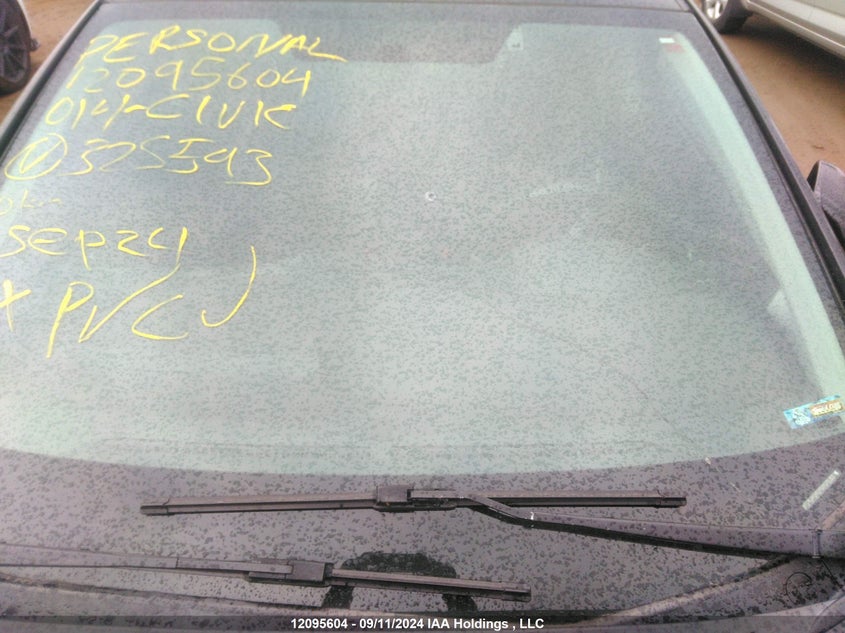 PERSONAL
12095604
014-CIVIC
Ⓥ325593
SEP24
+ PVC
12095604 - 09/11/2024 IAA Holdings , LLC